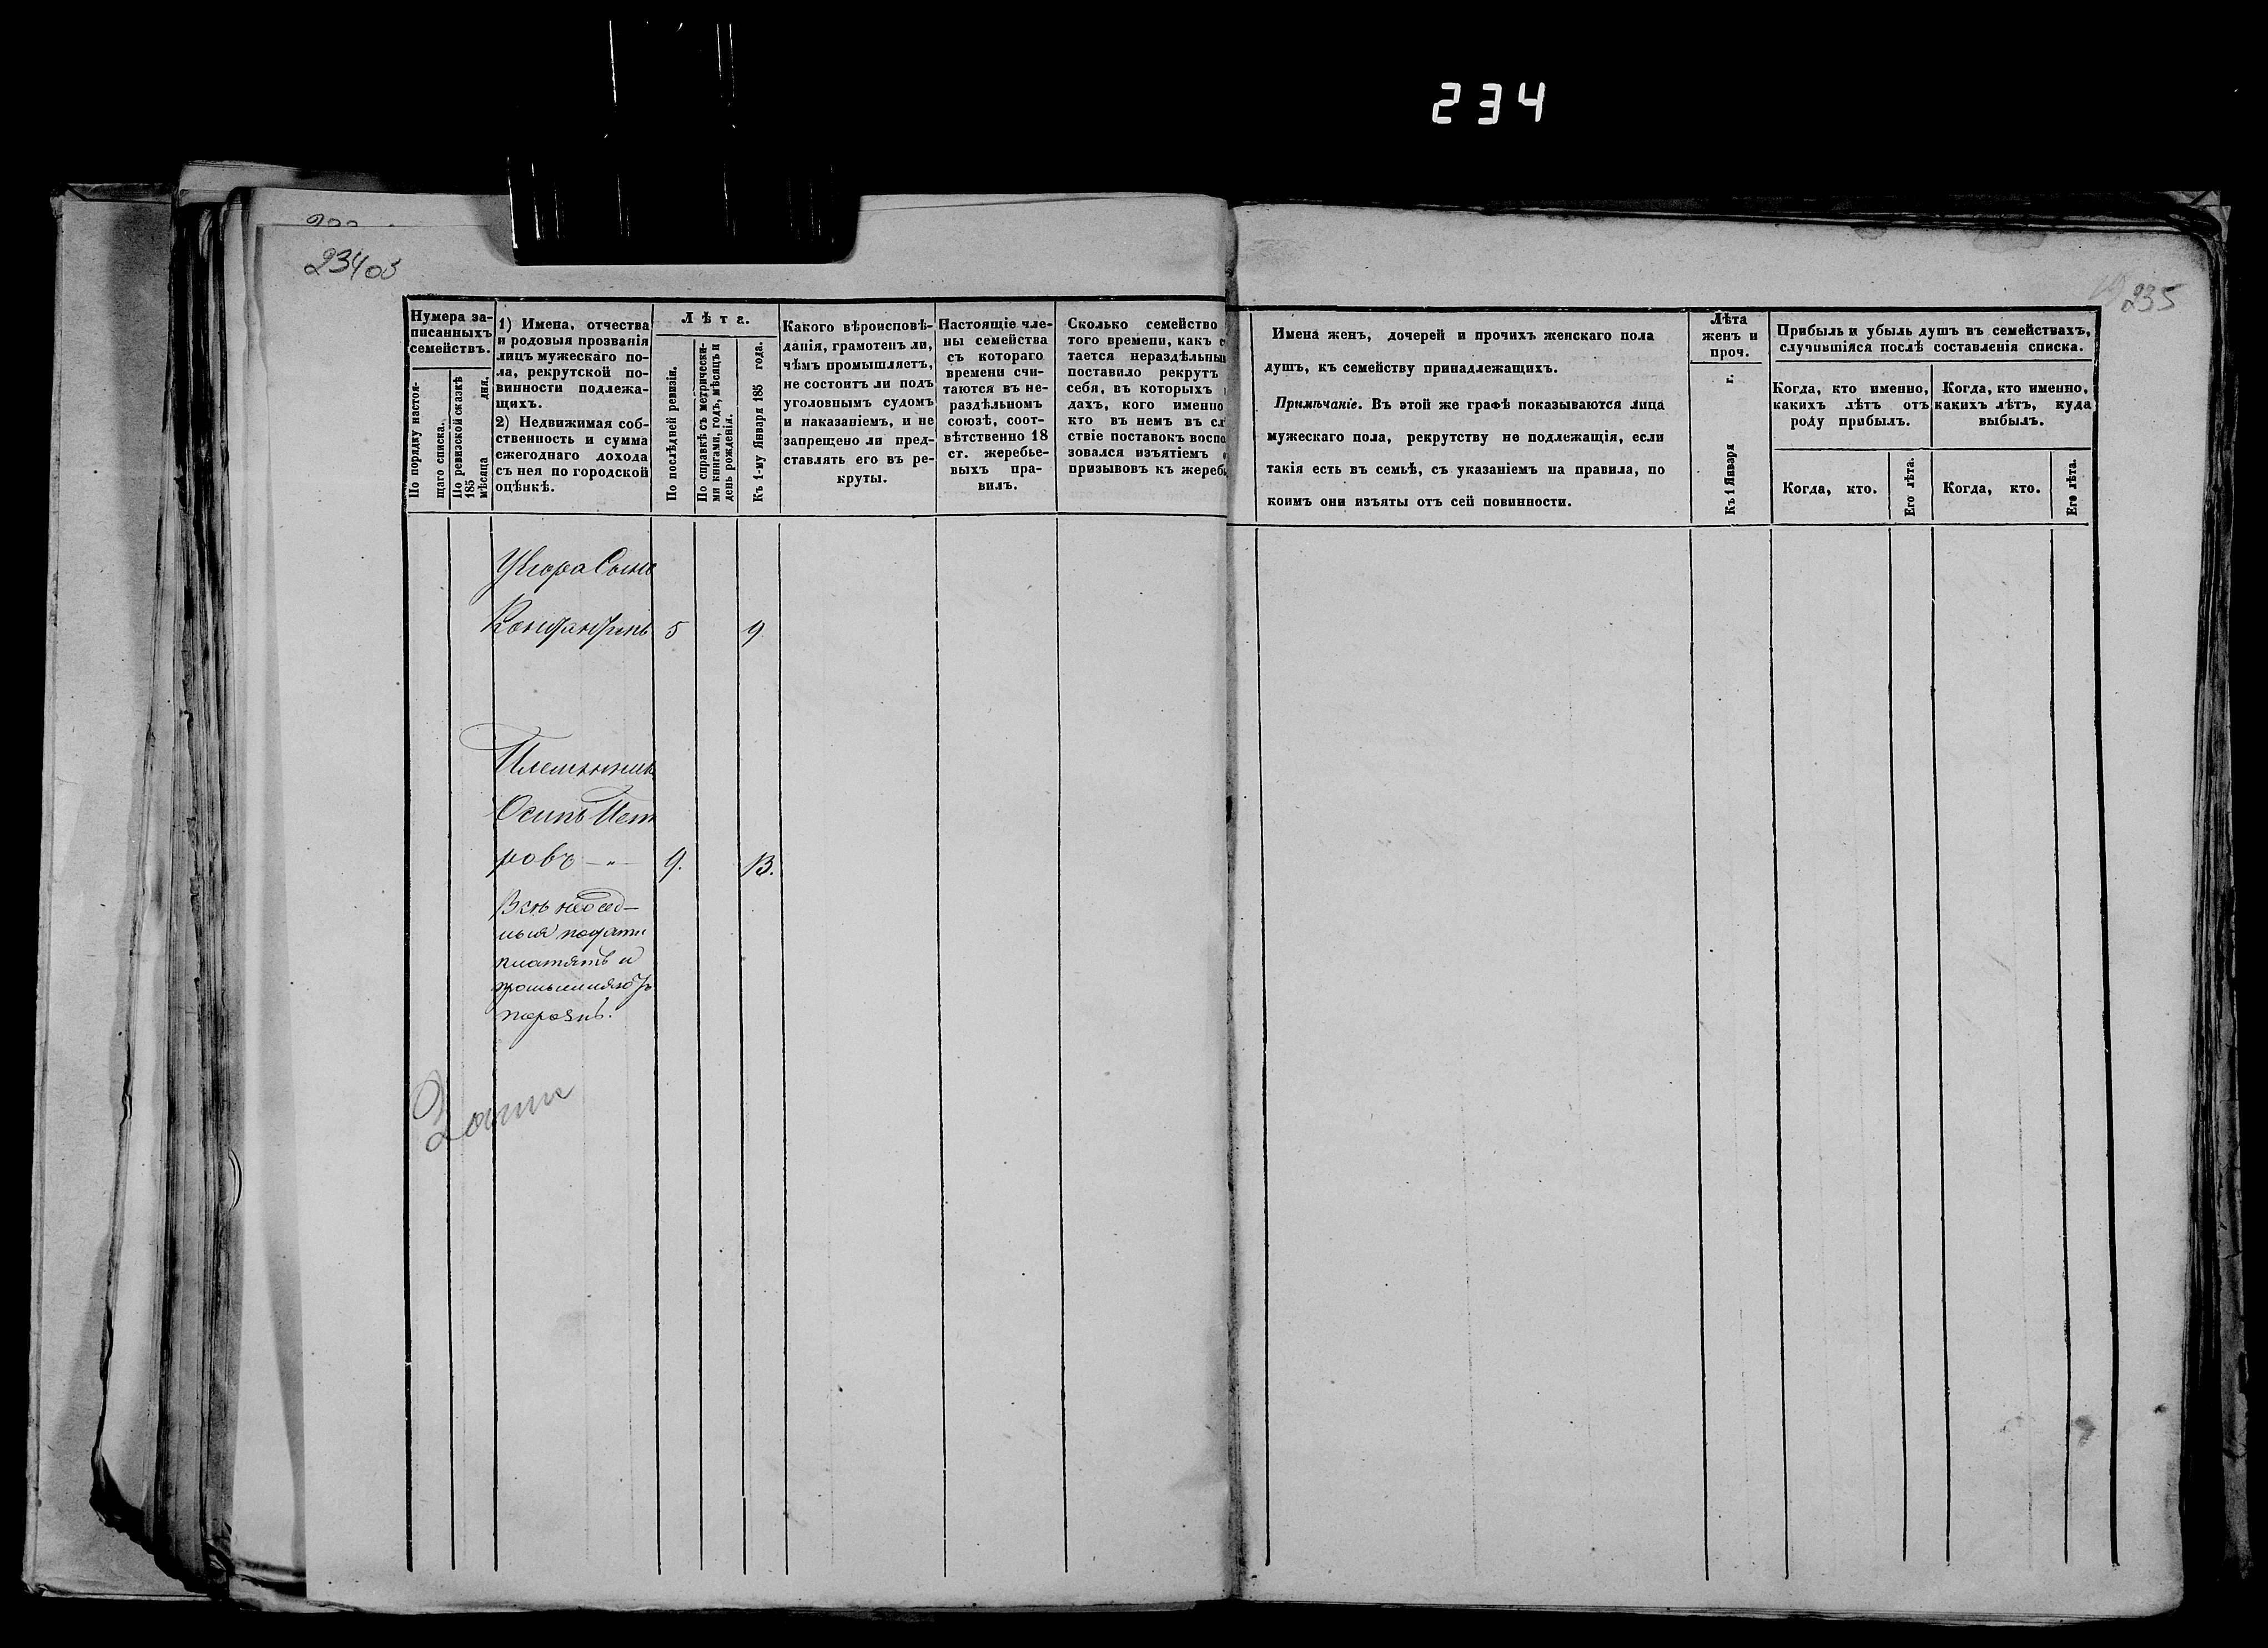 234
234 об
235
Нумера за-
писанныхъ
семействъ.
По порядку настоя-
щаго списка.
По ревизской сказкѣ
185 дня.
мѣсяца
1) Имена, отчества
и родовыя прозванія
лицъ мужескаго по-
ла, рекрутской по-
винности подлежа-
щихъ.
2) Недвижимая соб-
ственность и сумма
ежегоднаго дохода
съ нея по городской
оцѣнкѣ.
Лѣта.
По послѣдней ревизіи.
По справкѣ съ метрически-
ми книгами, годъ, мѣсяцъ и
день рожденія.
Къ 1-му Января 185 года.
Какого вѣроисповѣ-
данія, грамотенъ ли,
чѣмъ промышляетъ,
не состоитъ ли подъ
уголовнымъ судомъ
и наказаніемъ, и не
запрещено ли пред-
ставлять его въ ре-
круты.
Настоящіе чле-
ны семейства
съ котораго
времени счи-
таются въ не-
раздѣльномъ
союзѣ, соот-
вѣтственно 18
ст. жеребье-
выхъ пра-
вилъ.
Сколько семейство
того времени, какъ с
тается нераздѣльны
поставило рекрутъ
себя, въ которыхъ
дахъ, кого именно
кто въ немъ въ сл
ствіе поставокъ воспо
зовался изъятіемъ
призывовъ къ жереб
Имена женъ, дочерей и прочихъ женскаго пола
душъ, къ семейству принадлежащихъ.
Примѣчаніе. Въ этой же графѣ показываются лица
мужескаго пола, рекрутству не подлежащія, если
такія есть въ семьѣ, съ указаніемъ на правила, по
коимъ они изъяты отъ сей повинности.
Лѣта
женъ и
проч.
Къ 1 Января г.
Прибыль и убыль душъ въ семействахъ,
случившіяся послѣ составленія списка.
Когда, кто именно,
какихъ лѣтъ отъ
роду прибылъ.
Когда, кто именно,
какихъ лѣтъ, куда
выбылъ.
Когда, кто.
Его лѣта.
Когда, кто.
Его лѣта.
У Егора Сынъ
Константинъ 5 9
Племянникъ
Осипъ Пет
ровъ — " — 9. 13.
Всѣ
подати
платятъ и
промышляютъ
порознь.